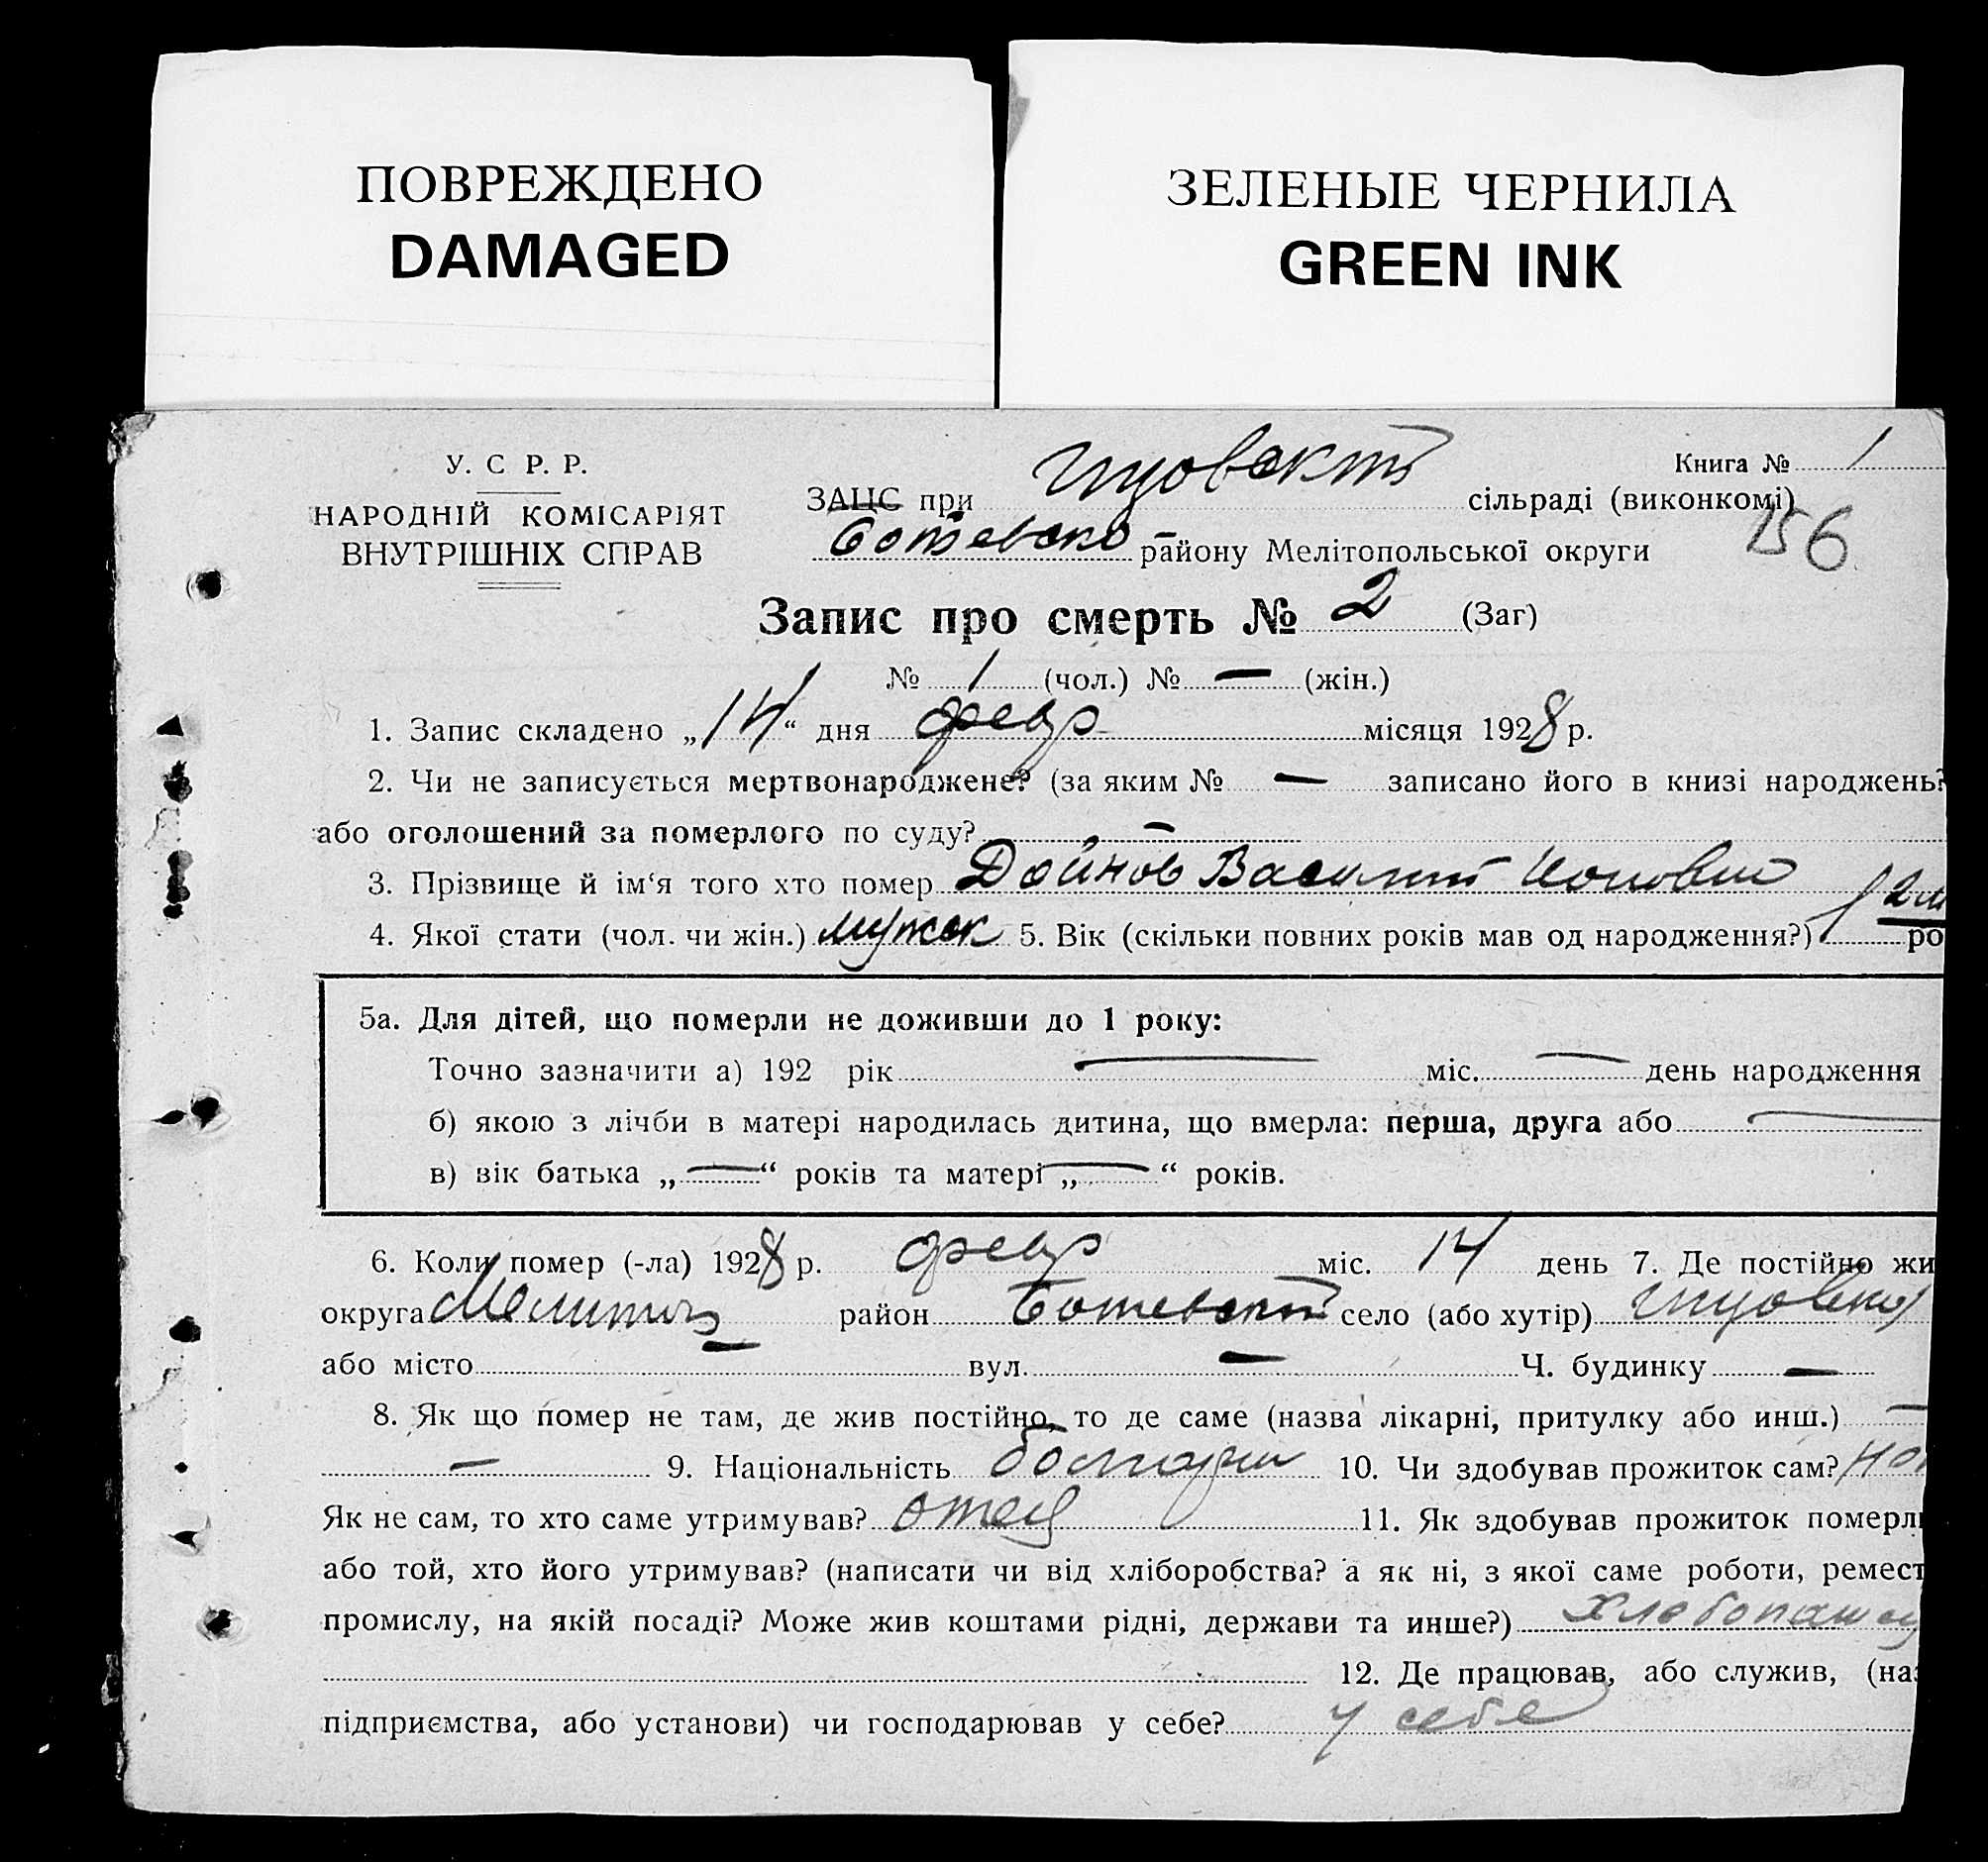 ПОВРЕЖДЕНО
DAMAGED
ЗЕЛЕНЫЕ ЧЕРНИЛА
GREEN INK
У. С Р. Р.
НАРОДНІЙ КОМІСАРІЯТ
ВНУТРІШНІХ СПРАВ
Книга № 1
ЗАЦС при сільраді (виконкомі)
Ботевско района Мелітопольської округи 156
Запис про смерть № 2 (Заг)
№ 1 (чол.) № — (жін.)
1. Запис складено „14“ дня февр місяця 1928 р.
2. Чи не записується мертвонароджене? (за яким № — записано його в книзі народжень?
або оголошений за померлого по суду? —
3. Прізвище й ім‘я того хто помер Дойнов Василий
4. Якої стати (чол. чи жін.) мужск 5. Вік (скільки повних років мав од народження?) ро
5а. Для дітей, що померли не доживши до 1 року:
Точно зазначити а) 192 рік — міс. — день народження
б) якою з лічби в матері народилась дитина, що вмерла: перша, друга або —
в) вік батька „—“ років та матері „—“ років.
6. Коли помер (-ла) 1928 р. февр міс. 14 день 7. Де постійно жи
округа Мелитоп район Ботевский село (або хутір)
або місто — вул. — Ч. будинку —
8. Як що помер не там, де жив постійно, то де саме (назва лікарні, притулку або инш.) —
— 9. Національність болгарин 10. Чи здобував прожиток сам?
Як не сам, то хто саме утримував? отец 11. Як здобував прожиток померли
або той, хто його утримував? (написати чи від хліборобства? а як ні, з якої саме роботи, ремест
промислу, на якій посаді? Може жив коштами рідні, держави та инше?) хлебопаш
12. Де працював, або служив, (наз
підприємства, або установи) чи господарював у себе? у себе